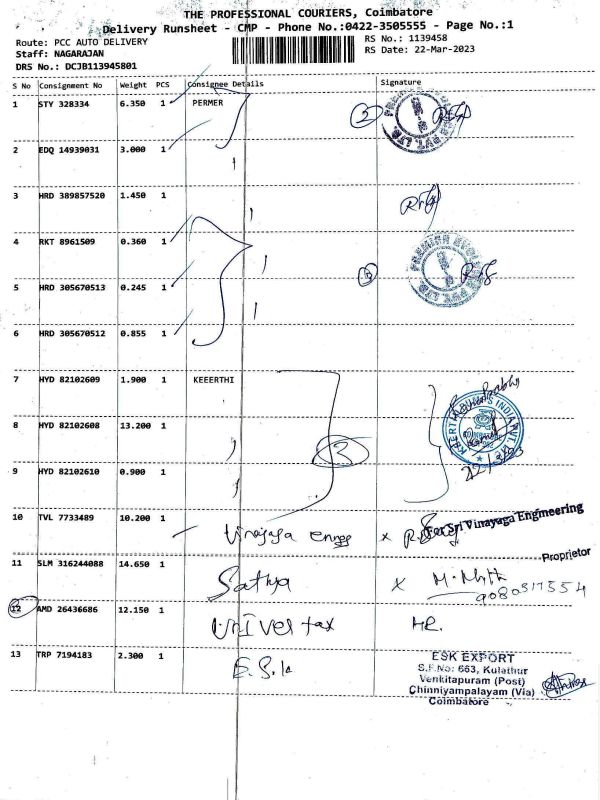 THE PROFESSIONAL COURIERS, Coimbatore
Delivery Runsheet - CMP - Phone No.:0422-3505555 - Page No.:1
Route: PCC AUTO DELIVERY
RS No.: 1139458
Staff: NAGARAJAN
RS Date: 22-Mar-2023
DRS No.: DCJB113945801
S No Consignment No Weight PCS Consignee Details Signature
1 STY 328334 6.350 1 PERMER
2
2 EDQ 14939031 3.000 1
3 HRD 389857520 1.450 1
4 RKT 8961509 0.360 1
5 HRD 305670513 0.245 1
6 HRD 305670512 0.855 1
7 HYD 82102609 1.900 1 KEEERTHI
8 HYD 82102608 13.200 1
3
9 HYD 82102610 0.900 1
10 TVL 7733489 10.200 1 Vinajaga x
For Sri Vinayaga Engineering
Proprietor
11 SLM 316244088 14.650 1 Sathya x
12 AMD 26436686 12.150 1 Univer tax
13 TRP 7194183 2.300 1
ESK EXPORT
S.F.No: 663, Kulathur
Venkitapuram (Post)
Chinniyampalayam (Via)
Coimbatore